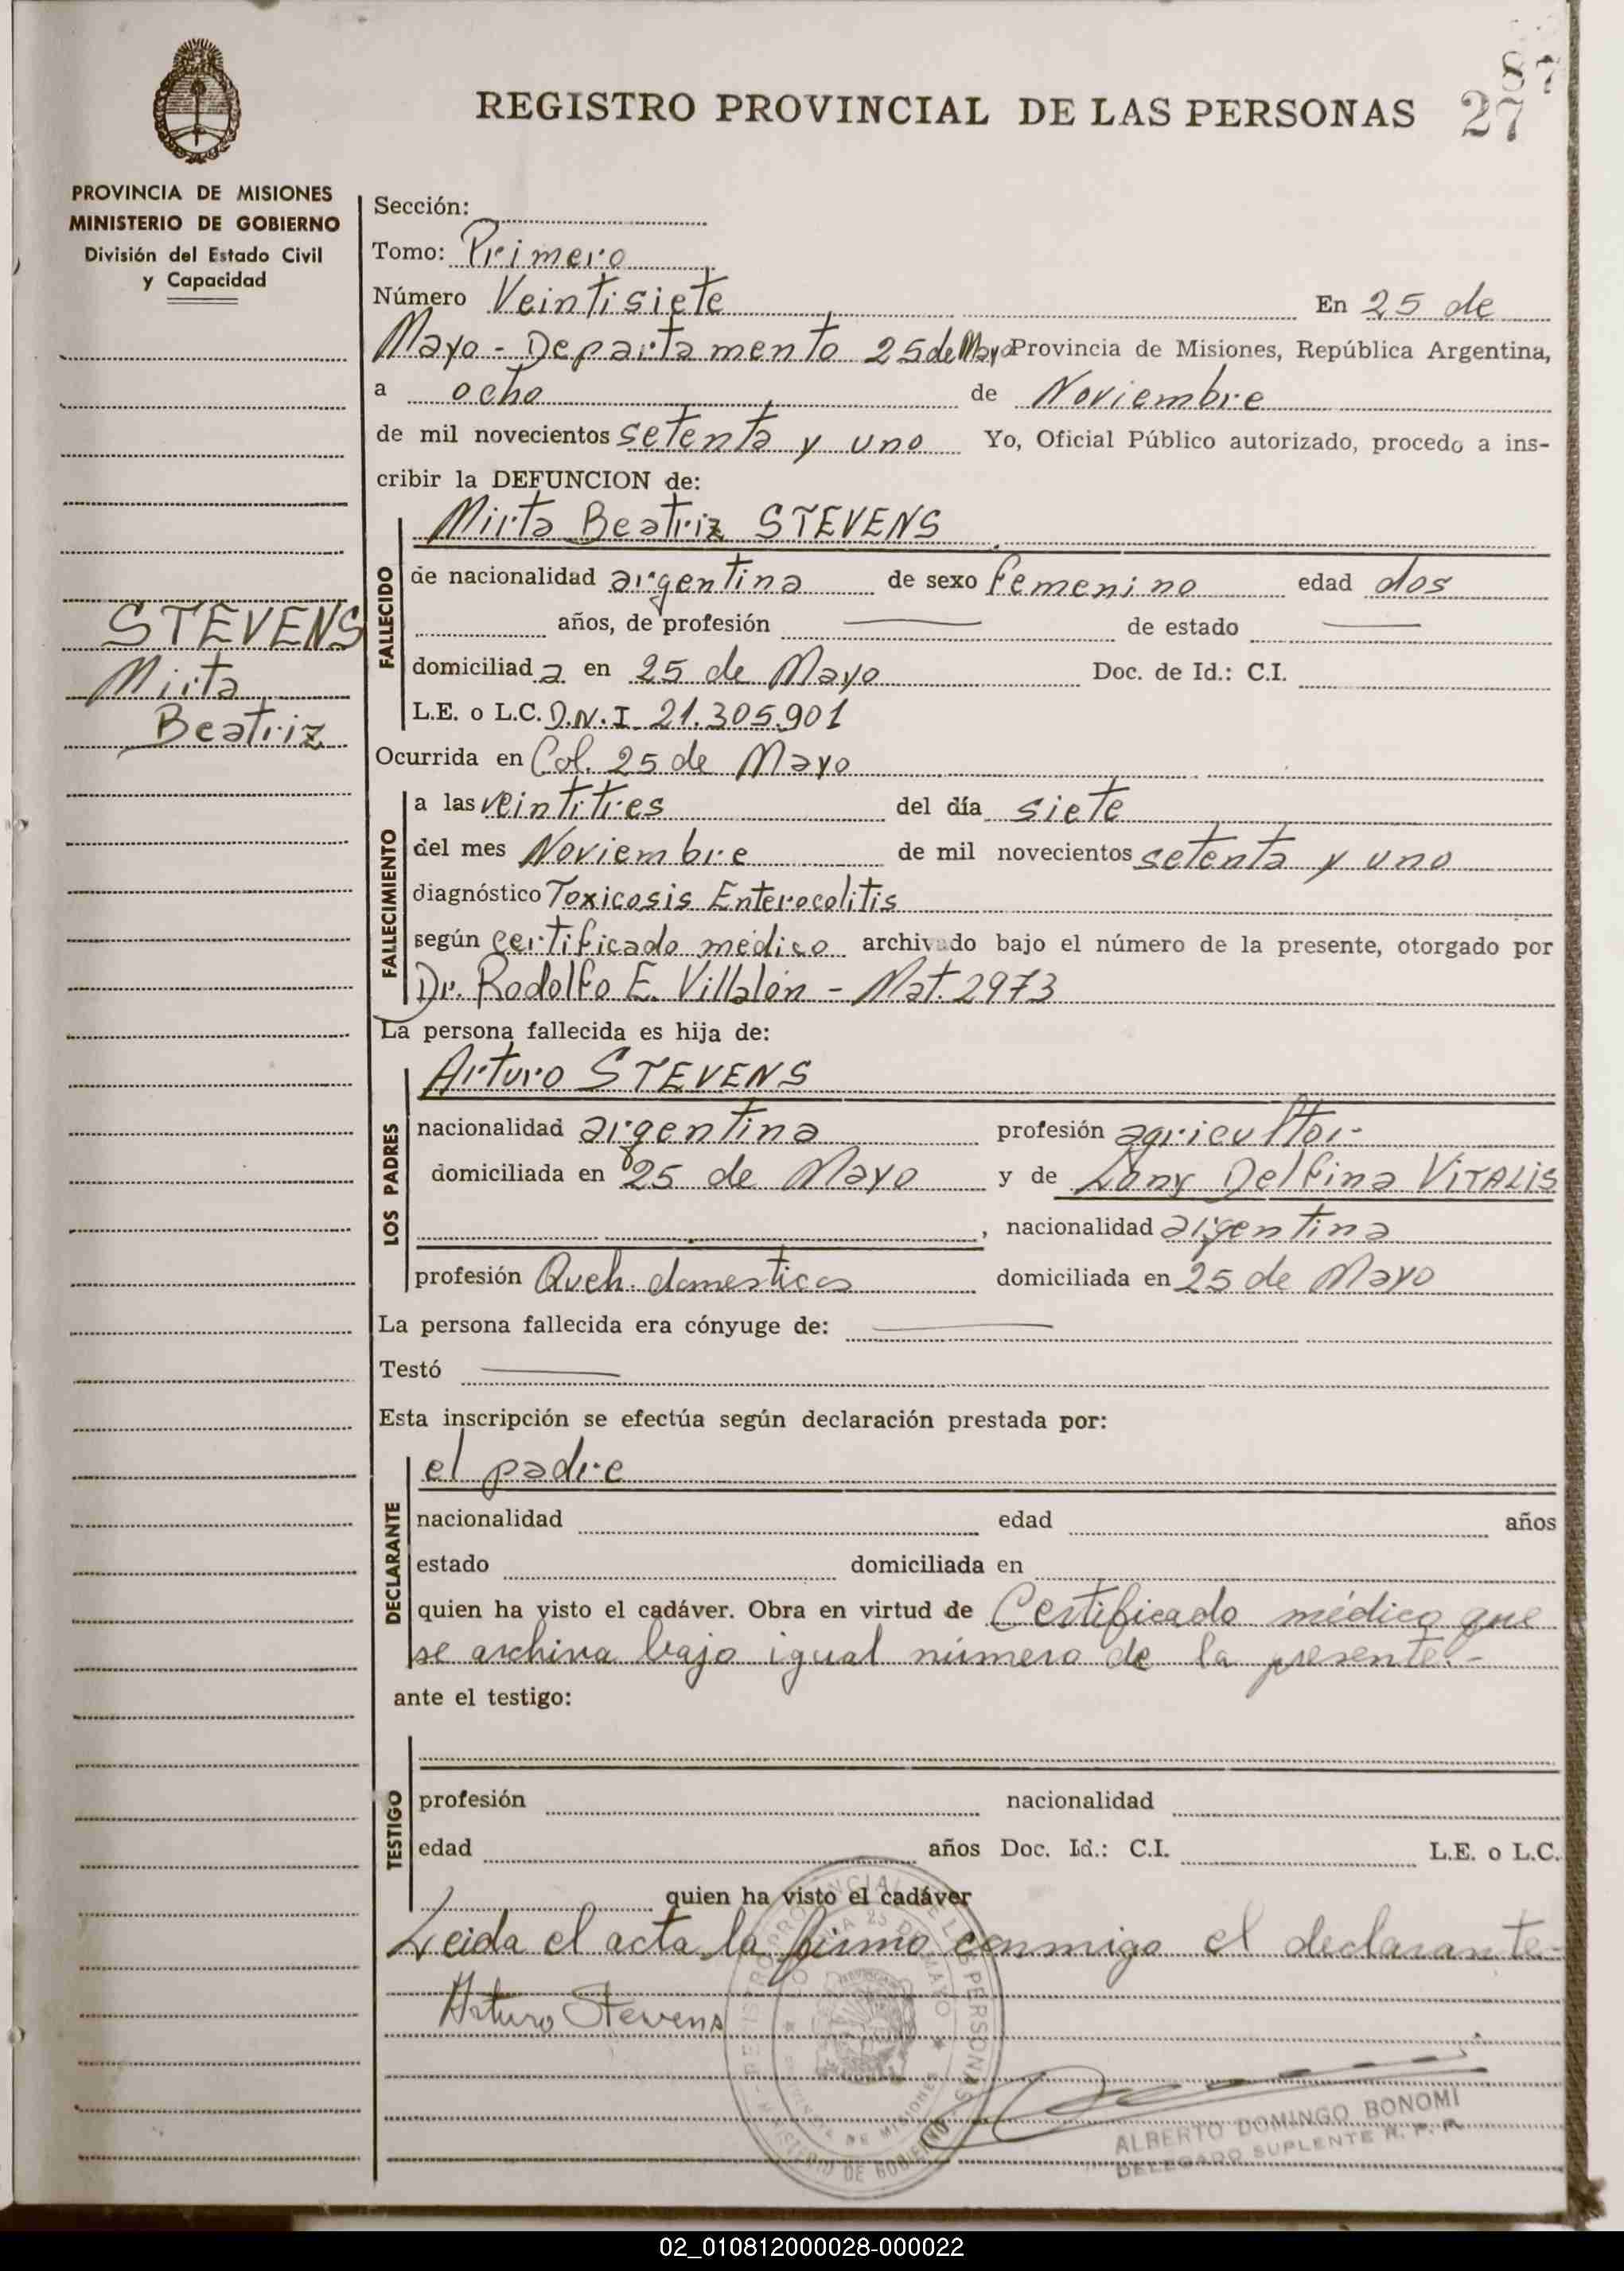 87
REGISTRO PROVINCIAL DE LAS PERSONAS 27
PROVINCIA DE MISIONES
MINISTERIO DE GOBIERNO
División del Estado Civil
y Capacidad
STEVENS
Mirta
Beatriz
Sección:
Tomo: Primero
Número Veintisiete En 25 de
Mayo - Departamento 25 de Mayo Provincia de Misiones, República Argentina,
a ocho de Noviembre
de mil novecientos setenta y uno Yo, Oficial Público autorizado, procedo a ins-
cribir la DEFUNCION de:
FALLECIDO
Mirta Beatriz STEVENS
de nacionalidad argentina de sexo femenino edad dos
años, de profesión — de estado —
domiciliad a en 25 de Mayo Doc. de Id.: C.I.
L.E. o L.C. D.N.I 21.305.901
Ocurrida en Col. 25 de Mayo
FALLECIMIENTO
a las veintitres del día siete
del mes Noviembre de mil novecientos setenta y uno
diagnóstico Toxicosis Enterocolitis
según certificado médico archivado bajo el número de la presente, otorgado por
Dr. Rodolfo E. Villalón - Mat. 2973
La persona fallecida es hija de:
LOS PADRES
Arturo STEVENS
nacionalidad argentina profesión agricultor-
domiciliada en 25 de Mayo y de Lony Delfina VITALIS
, nacionalidad argentina
profesión Queh. domesticos domiciliada en 25 de Mayo
La persona fallecida era cónyuge de: —
Testó —
Esta inscripción se efectúa según declaración prestada por:
DECLARANTE
el padre
nacionalidad edad años
estado domiciliada en
quien ha visto el cadáver. Obra en virtud de Certificado médico que
se archiva bajo igual número de la presente.-
ante el testigo:
TESTIGO
profesión nacionalidad
edad años Doc. Id.: C.I. L.E. o L.C.
quien ha visto el cadáver
Leida el acta la firmo conmigo el declarante-
Arturo Stevens
REGISTRO PROVINCIAL DE LAS PERSONAS
25 DE MAYO
PROVINCIA DE MISIONES
MINISTERIO DE GOBIERNO
ALBERTO DOMINGO BONOMI
DELEGADO SUPLENTE R. P. P.
02_010812000028-000022